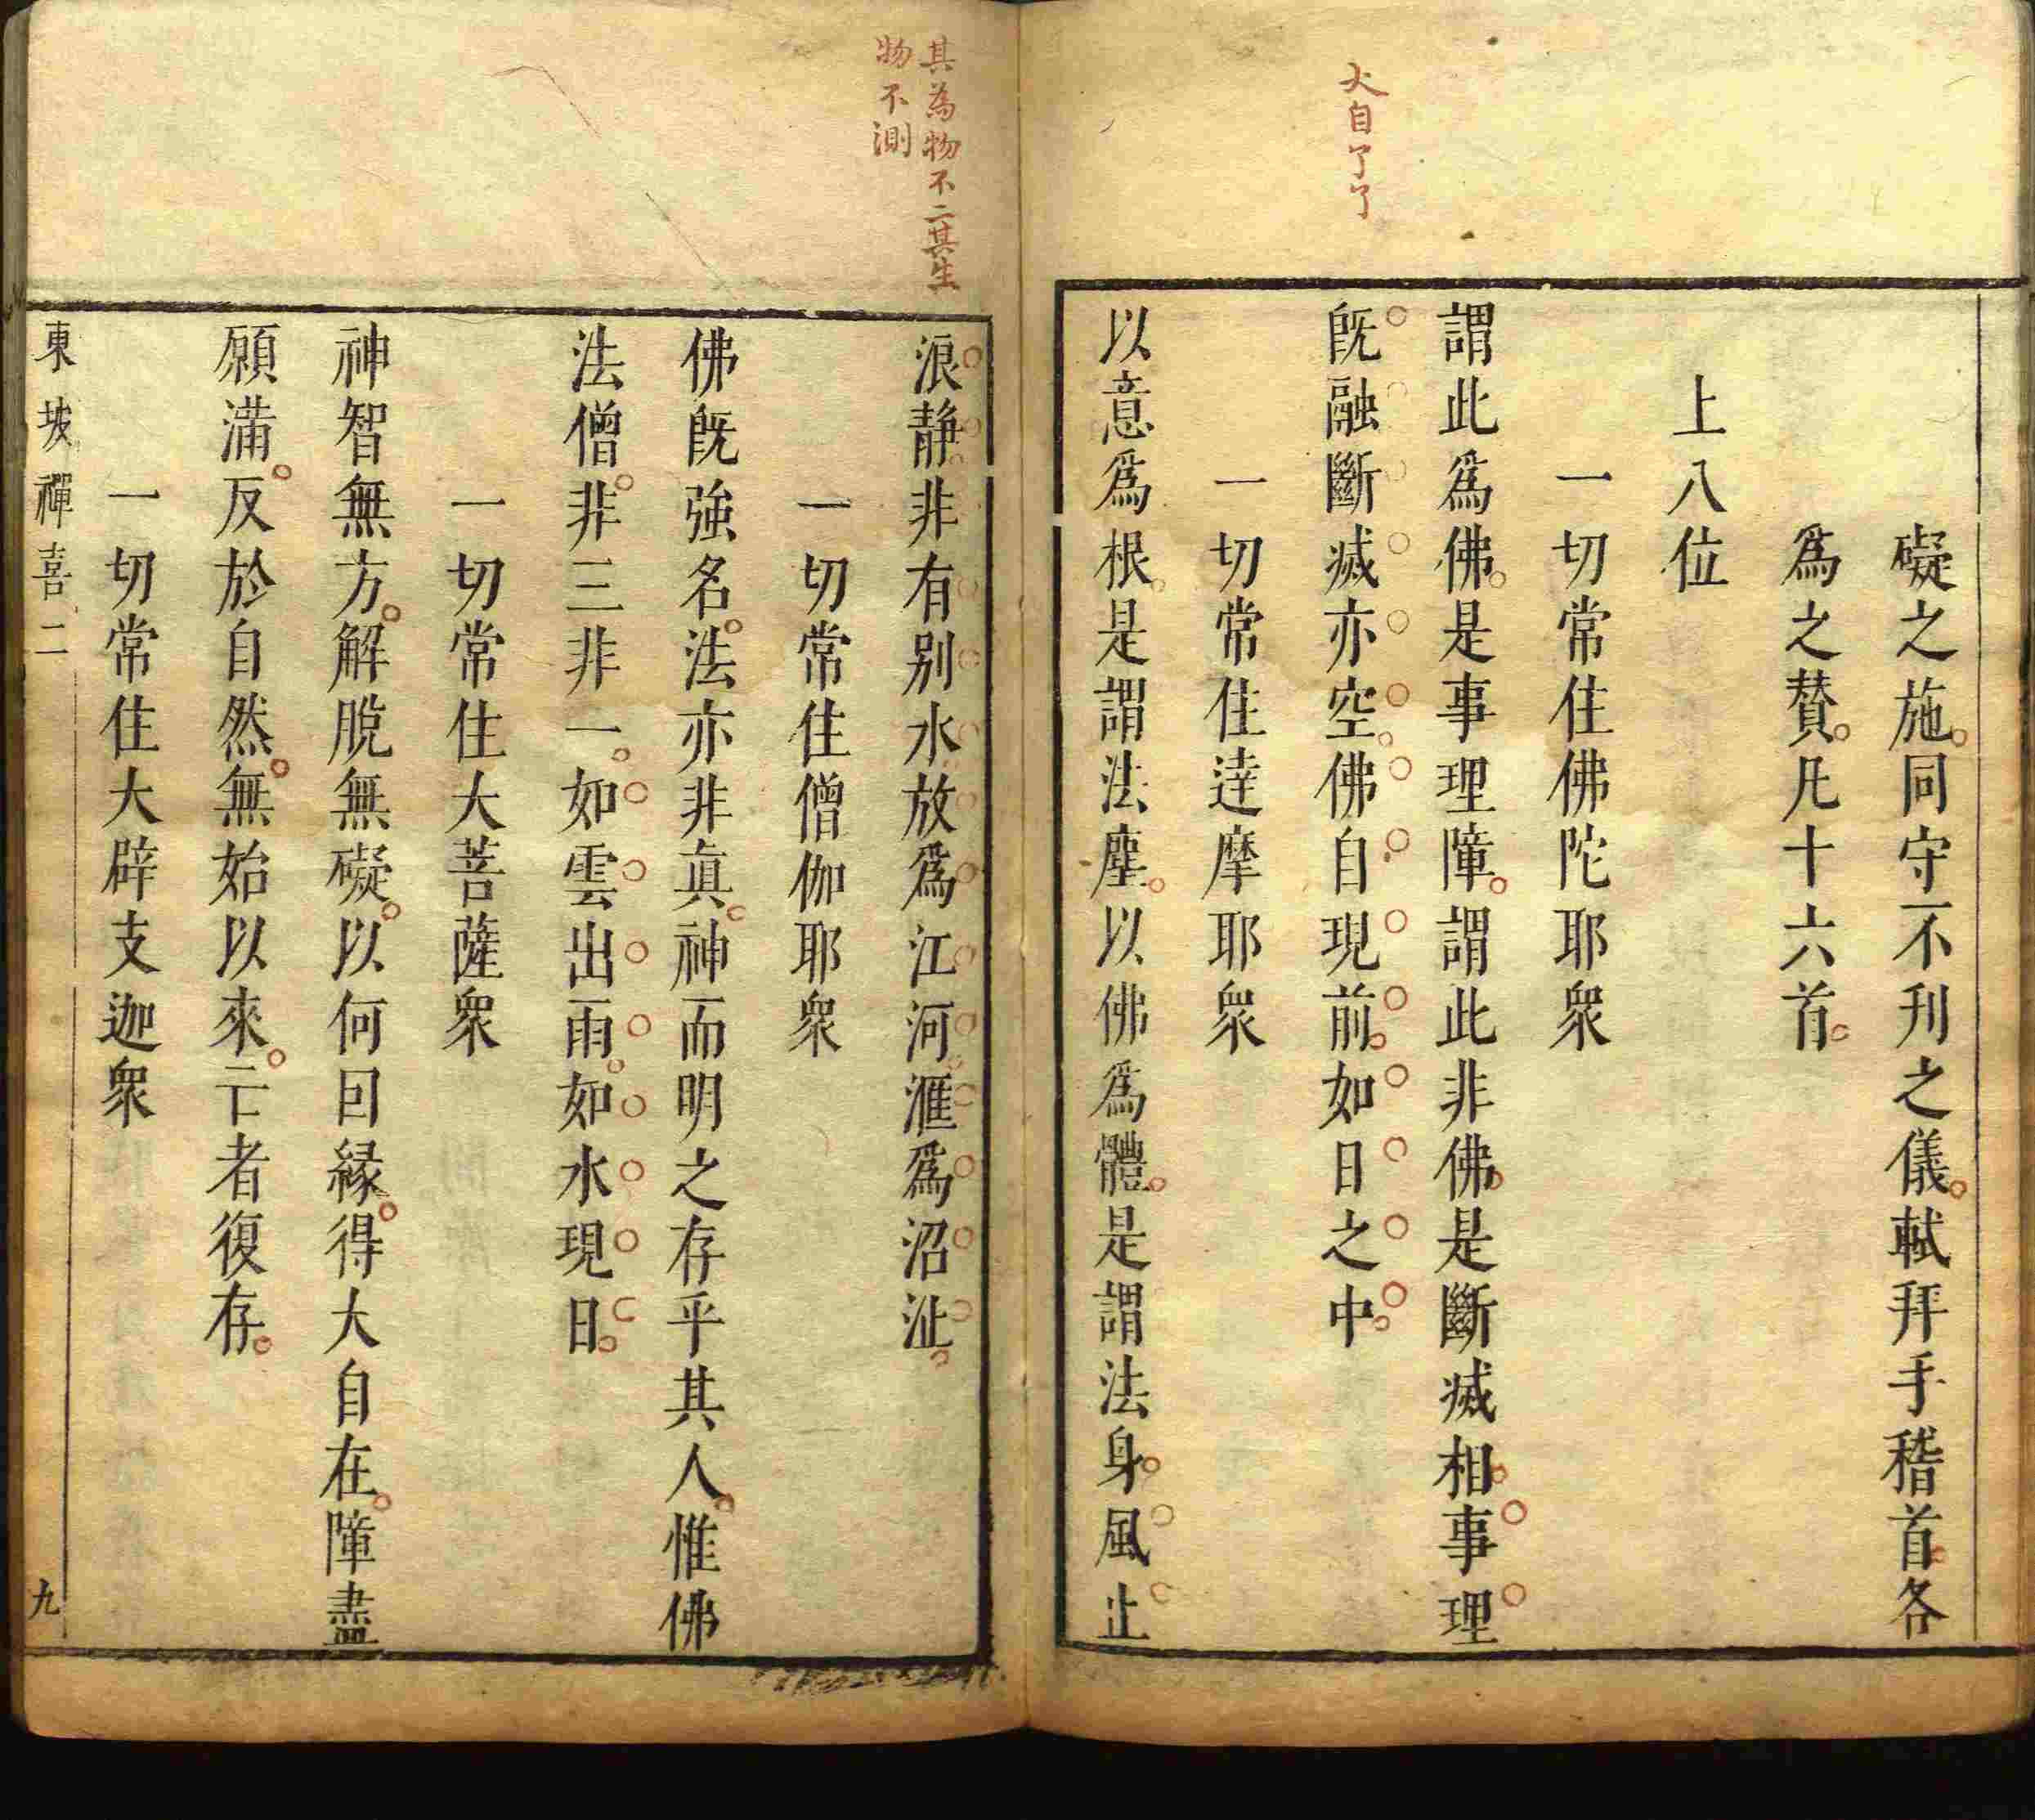 大自了了
礙之施同守不刋之儀軾拜手稽首各
爲之賛凡十六首
上八位
一切常住佛陀耶衆
謂此爲佛是事理障謂此非佛是斷滅相事理
旣融斷滅亦空佛自現前如日之中
一切常住達摩耶衆
以意爲根是謂法塵以佛爲體是謂法身風止
其為物不二其生
物不測
浪静非有别水放爲江河滙爲沼沚
一切常住僧伽耶衆
佛旣強名法亦非眞神而明之存乎其人惟佛
法僧非三非一如雲出雨如水現日
一切常住大菩薩衆
神智無方解脫無礙以何因緣得大自在障盡
願滿反於自然無始以來亡者復存
一切常住大辟支迦衆
東坡禪喜二
九